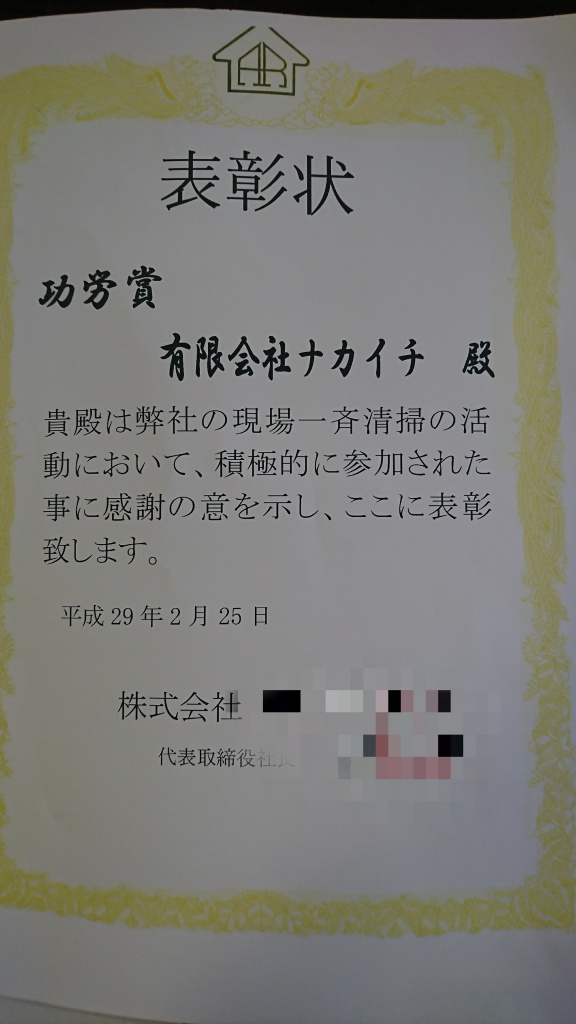 表彰状
功労賞
有限会社ナカイチ 殿
貴殿は弊社の現場一斉清掃の活
動において、積極的に参加された
事に感謝の意を示し、ここに表彰
致します。
平成29年2月25日
株式会社
代表取締役社長